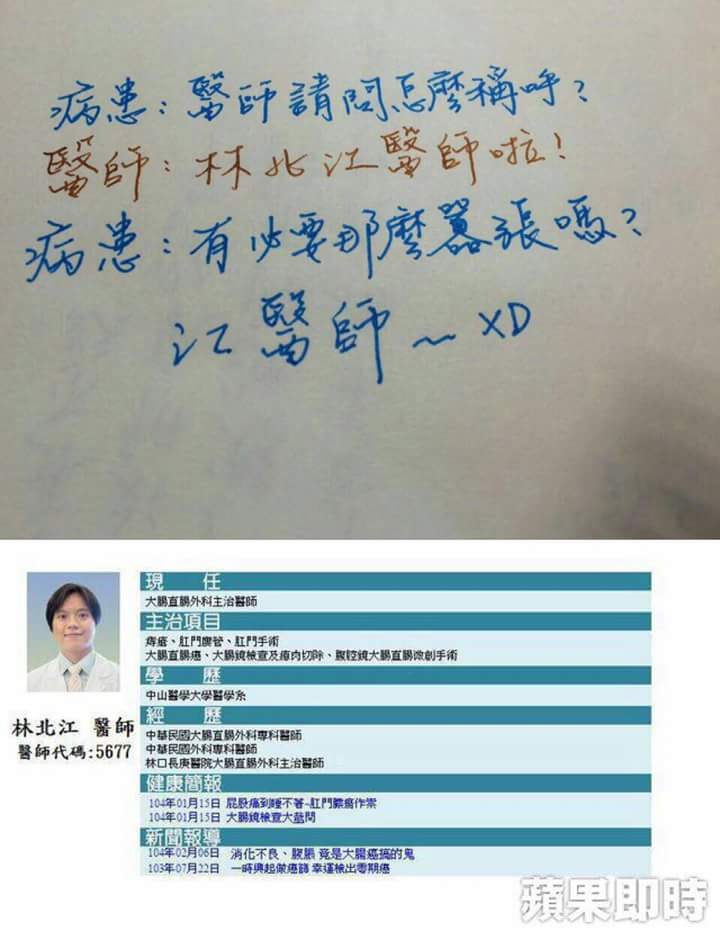 病患：醫師請問怎麼稱呼？
醫師：林北江醫師啦！
病患：有必要那麼囂張嗎？
江醫師～XD
現 任
大腸直腸外科主治醫師
主治項目
痔瘡、肛門廔管、肛門手術
大腸直腸癌、大腸鏡檢查及瘜肉切除、腹腔鏡大腸直腸微創手術
學 歷
中山醫學大學醫學系
經 歷
中華民國大腸直腸外科專科醫師
中華民國外科專科醫師
林口長庚醫院大腸直腸外科主治醫師
林北江 醫師
醫師代碼:5677
健康簡報
104年01月15日 屁股痛到睡不著~肛門膿瘍作祟
104年01月15日 大腸鏡檢查大哉問
新聞報導
104年02月06日 消化不良、腹脹 竟是大腸癌搞的鬼
103年07月22日 一時興起做癌篩 幸運檢出零期癌
蘋果即時